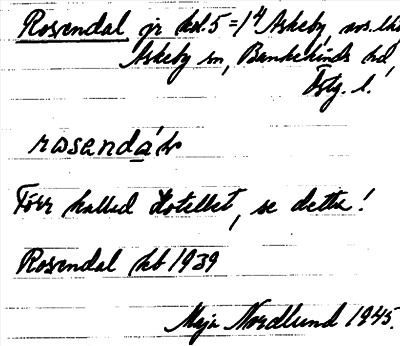 Rosendal jr kbl. 5 = 1⁴ Askeby, sos.
Askeby sn, Bankekinds hd,
Östg. l.
rosendá
Förr kallad Hotellet, se detta!
Rosendal kb 1939
Maja Nordlund 1945.